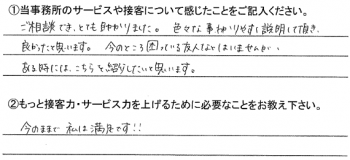 ①当事務所のサービスや接客について感じたことをご記入ください。
ご相談でき、とても助かりました。色々な事わかりやすく説明して頂き、
良かったと思います。今のところ困っている友人などはいませんが、
ある時には、こちらを紹介したいと思います。
②もっと接客力・サービス力を上げるために必要なことをお教え下さい。
今のままで私は満足です!!